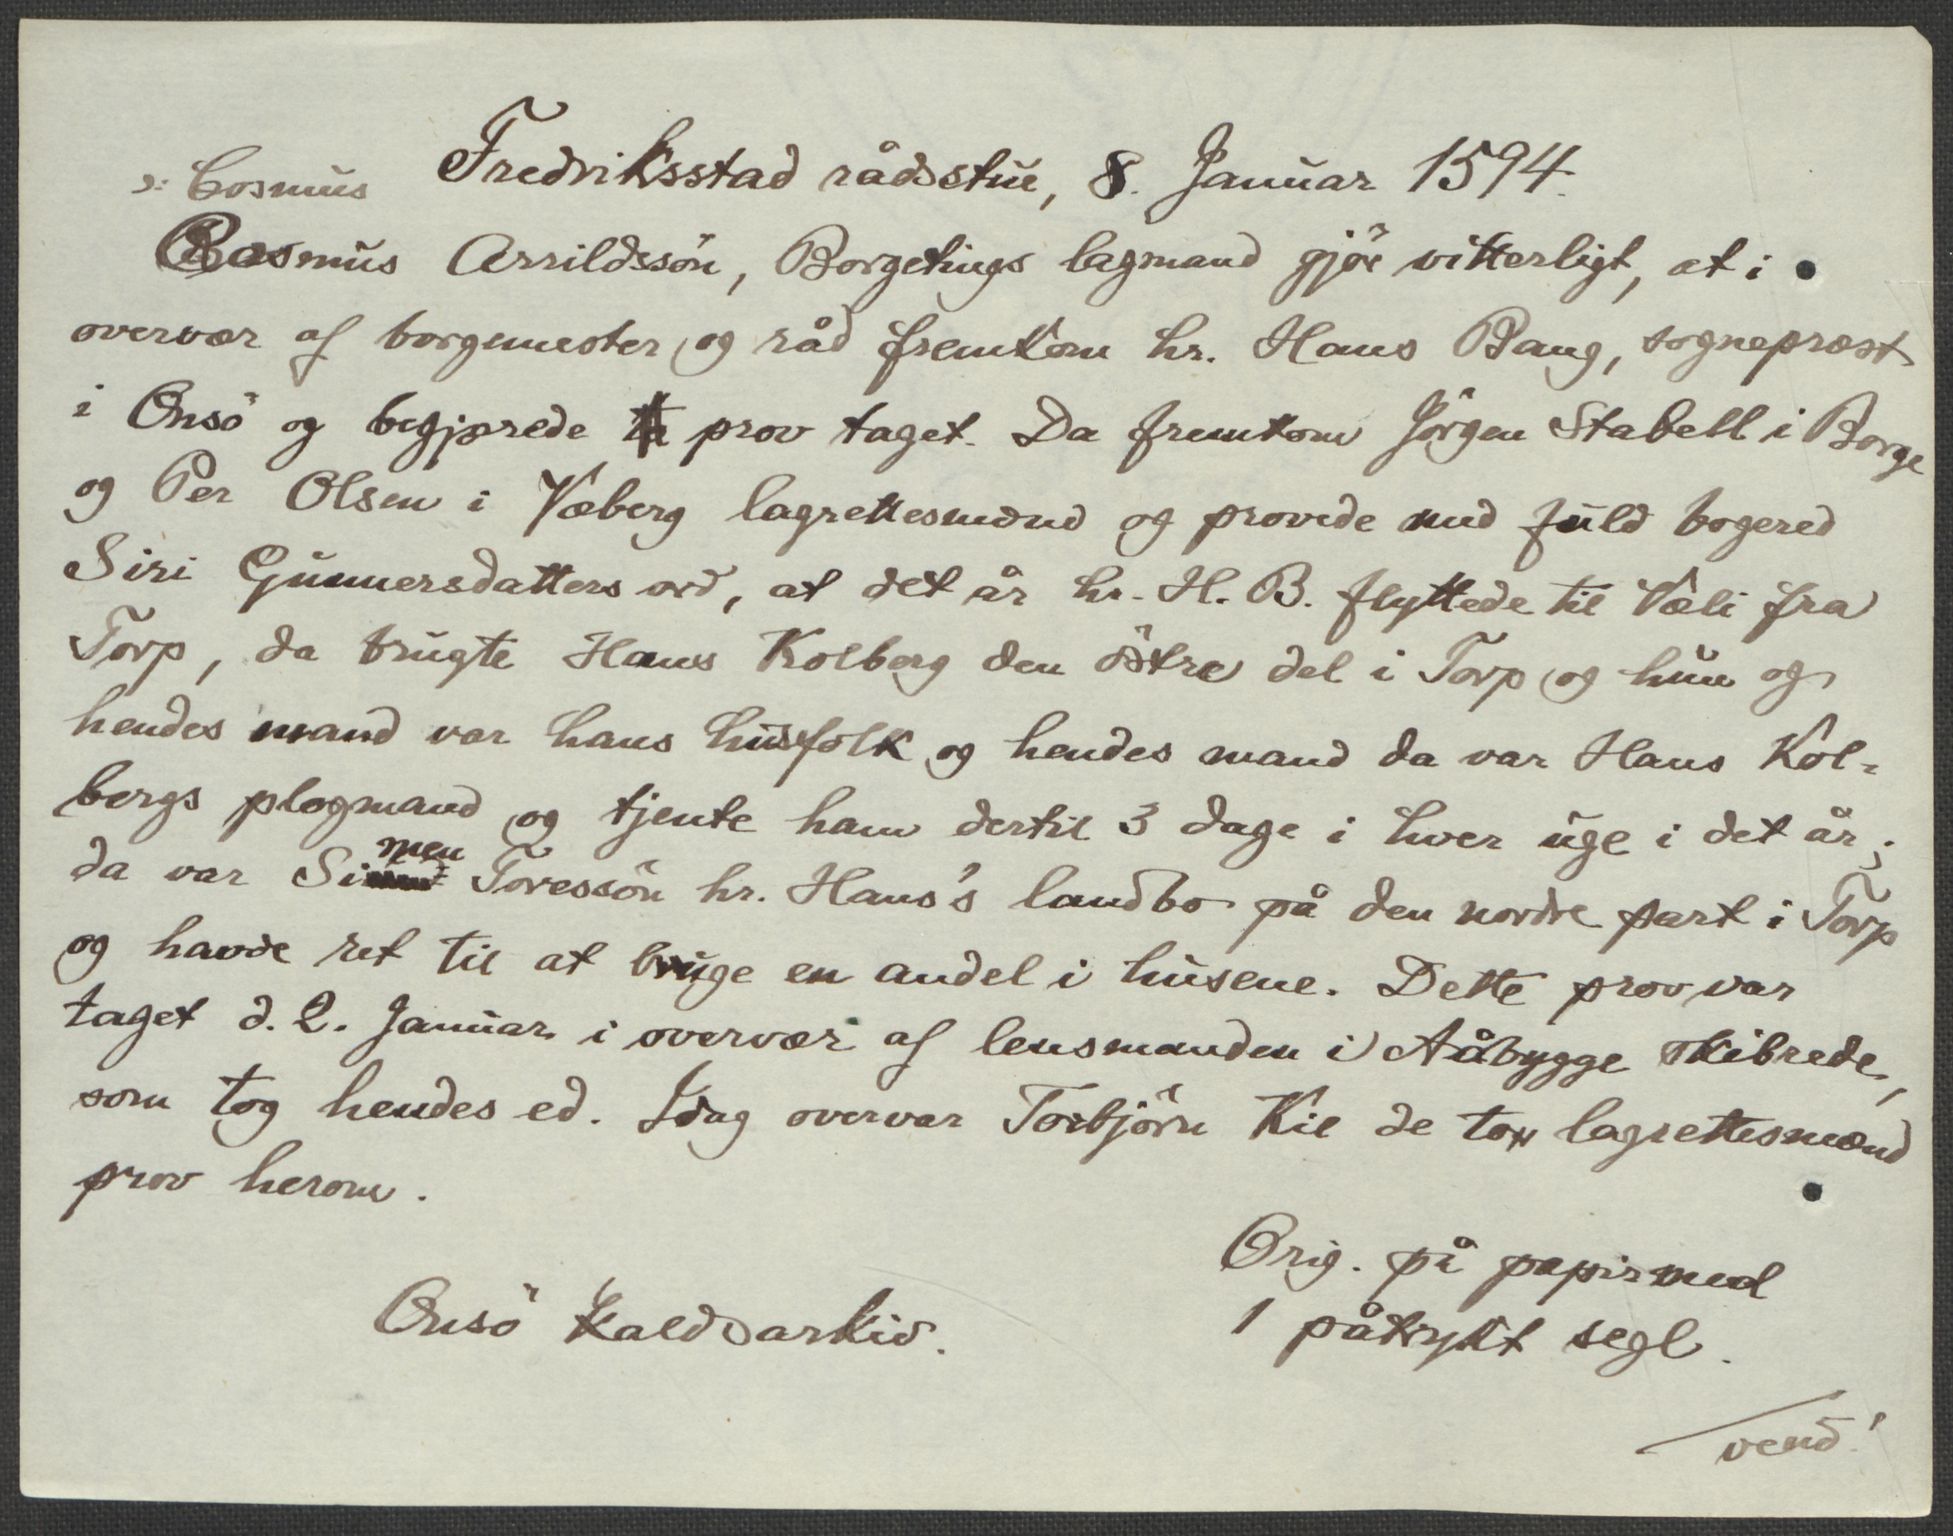 Fredriksstad rådsstue, 8. Januar 1594.
ɔ: Cosmus
Rasmus Arrildssön, Borgetings lagmand gjör vitterligt, at i
overvær af borgemester og råd fremkom hr. Hans Bang, sogneprest
i Onsö og begjærede prov taget. Da fremkom Jörgen Stabell i Borge
og Per Olsen i Væberg lagrettesmænd og provede med fuld bogered
Siri Gunnersdatters ord, at det år hr. H. B. flyttede til Væli fra
Torp, da brugte Hans Kolberg den östre del i Torp og hun og
hendes mand var hans husfolk og hendes mand da var Hans Kol-
bergs plogmand og tjente ham dertil 3 dage i hver uge i det år;
da var Simen Toressön hr. Hans's landbo på den nordre part i Torp
og havde ret til at bruge en andel i husene. Dette prov var
taget d. 2. Januar i overvær af lensmanden i Aåbygge skibrede,
som tog hendes ed. Idag overvar Torbjörn Kil de to lagrettesmænd
prov herom.
Orig. på papir med
1 påtrykt segl.
Onsö kaldsarkiv.
vend!